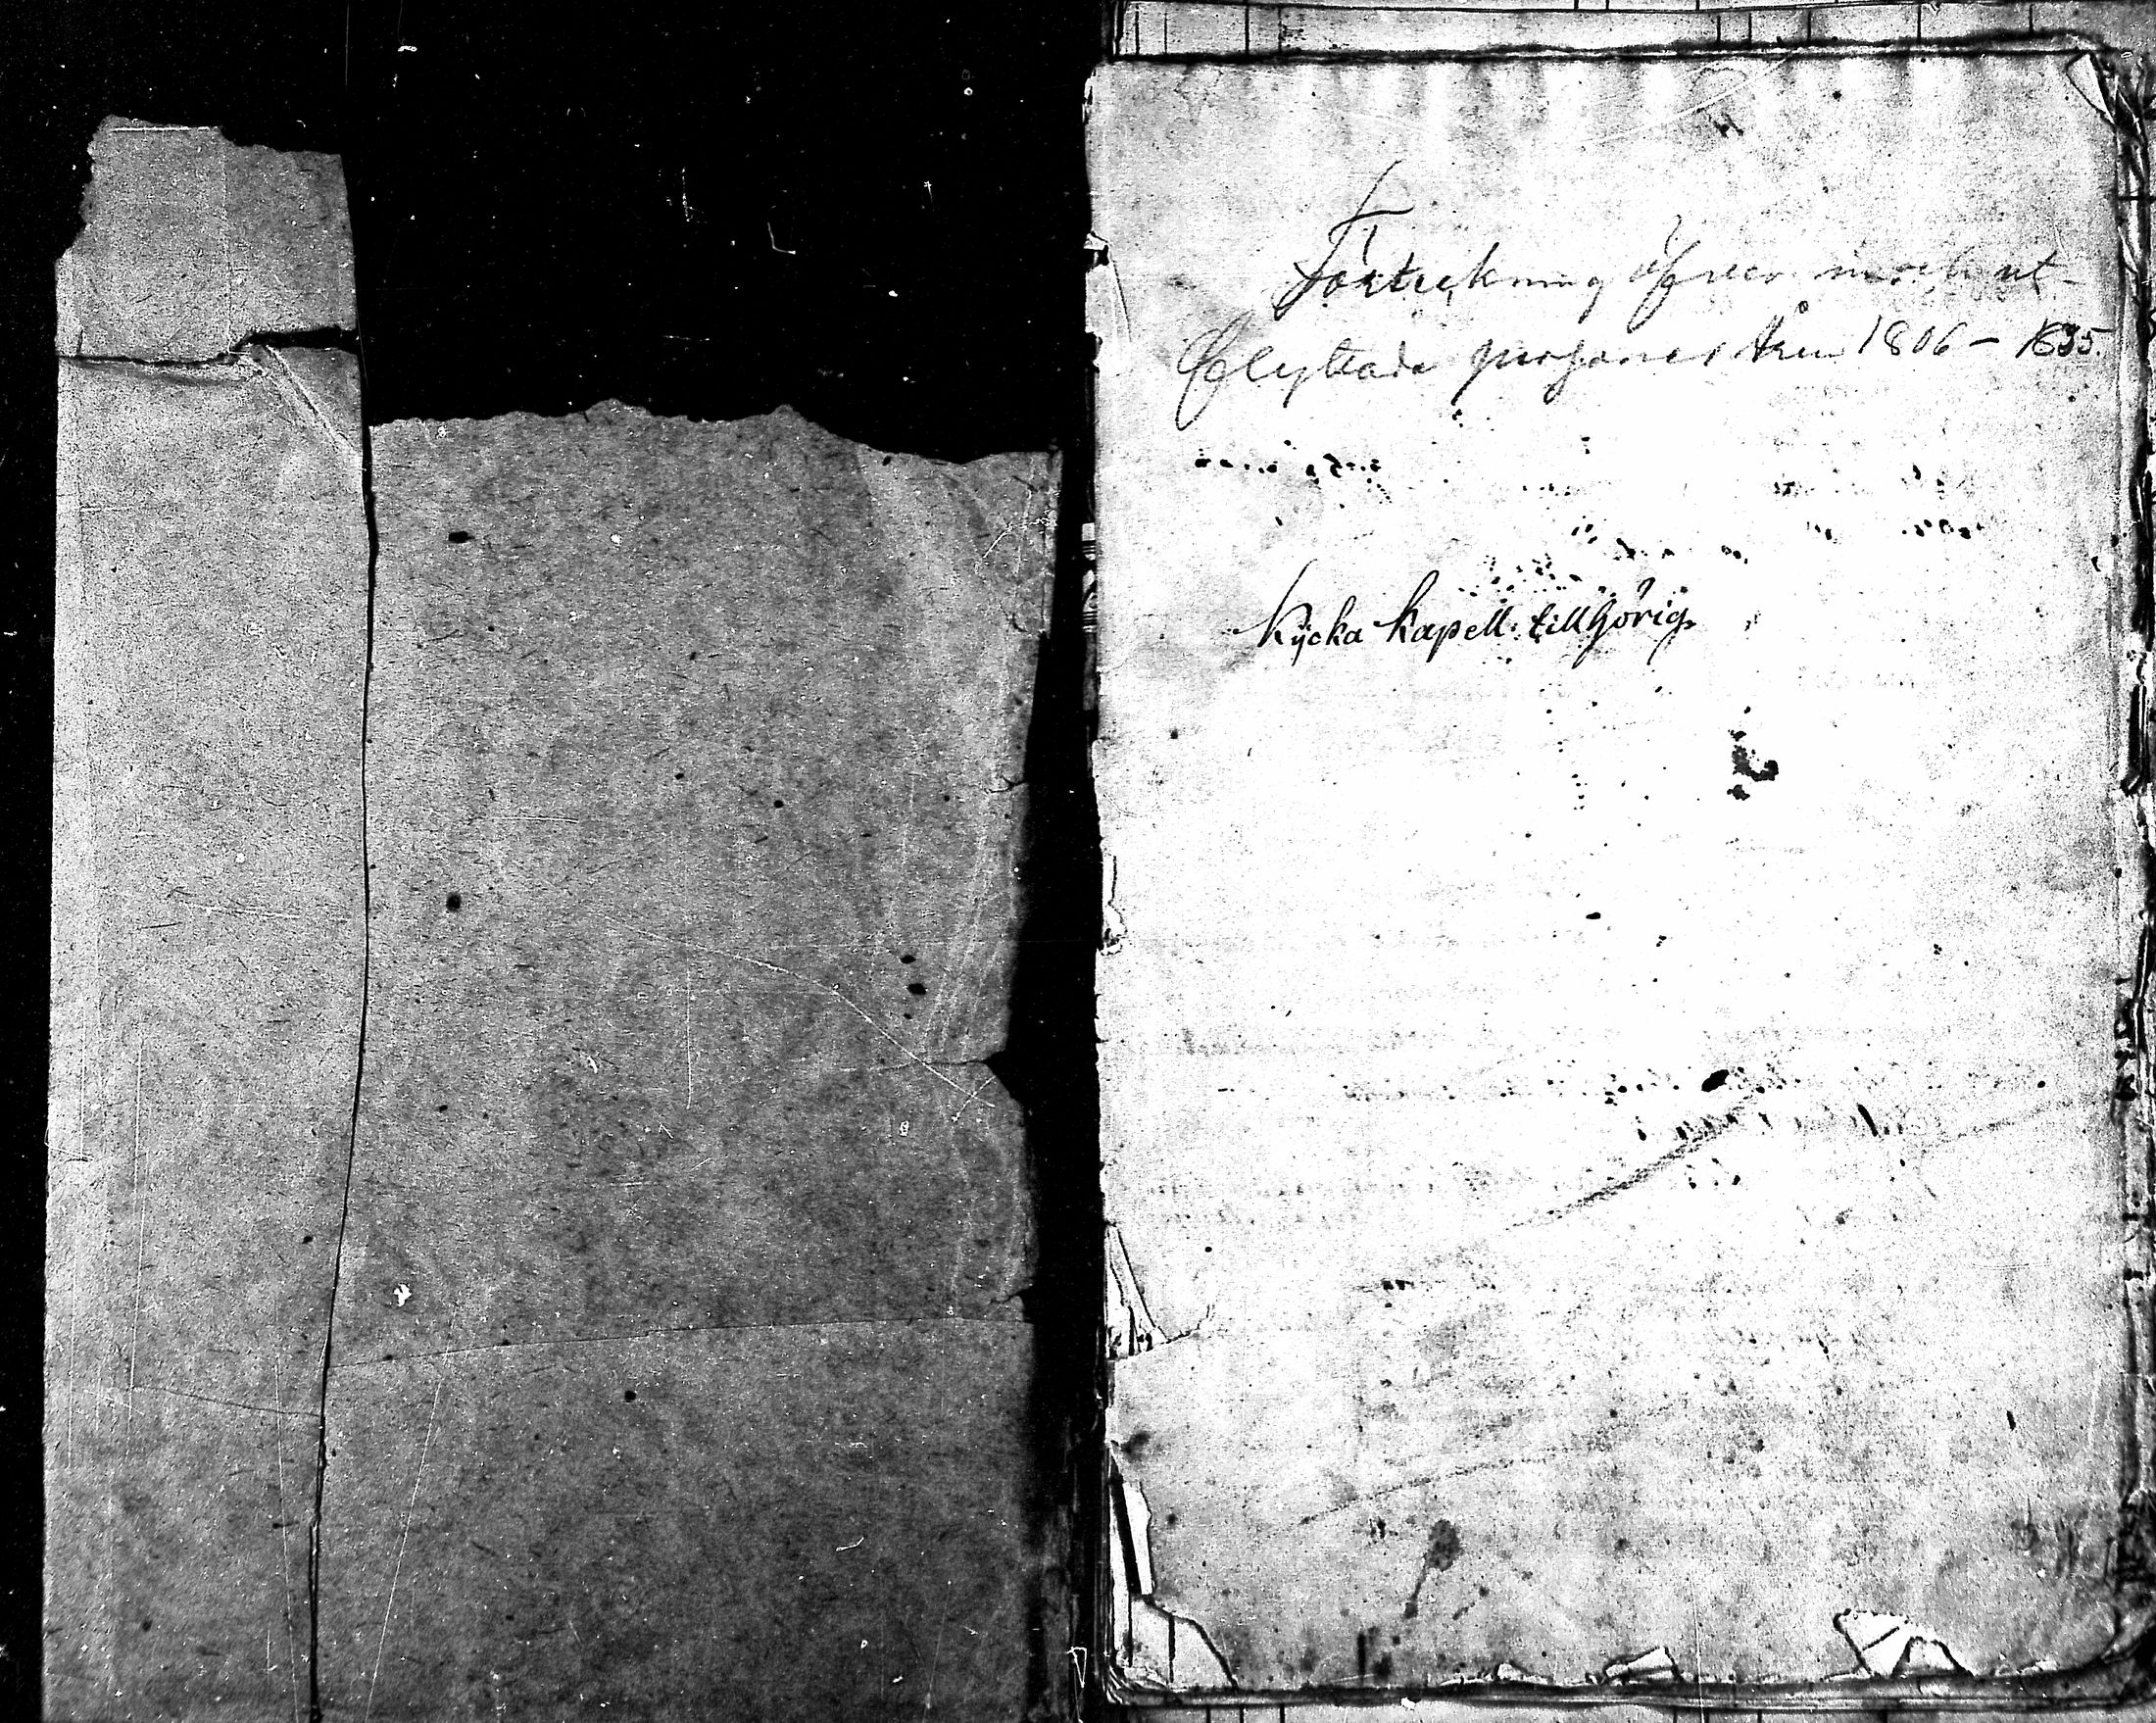 Förteckning öfver in och ut-
flyttade personer åren 1806 - 1835.
Kycka Kapell tillhörig.